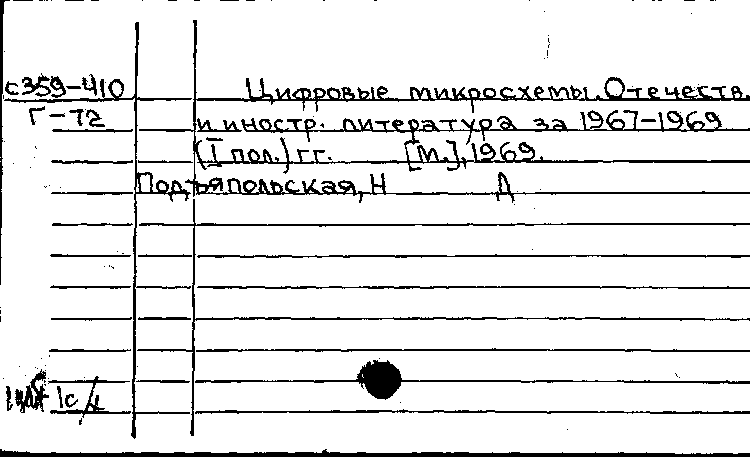 с359-410 Цифровые микросхемы. Отечеств.
Г-72 и иностр. литература за 1967-1969
(I пол.) гг. [М.], 1969.
Подъяпольская, Н Д
1с/